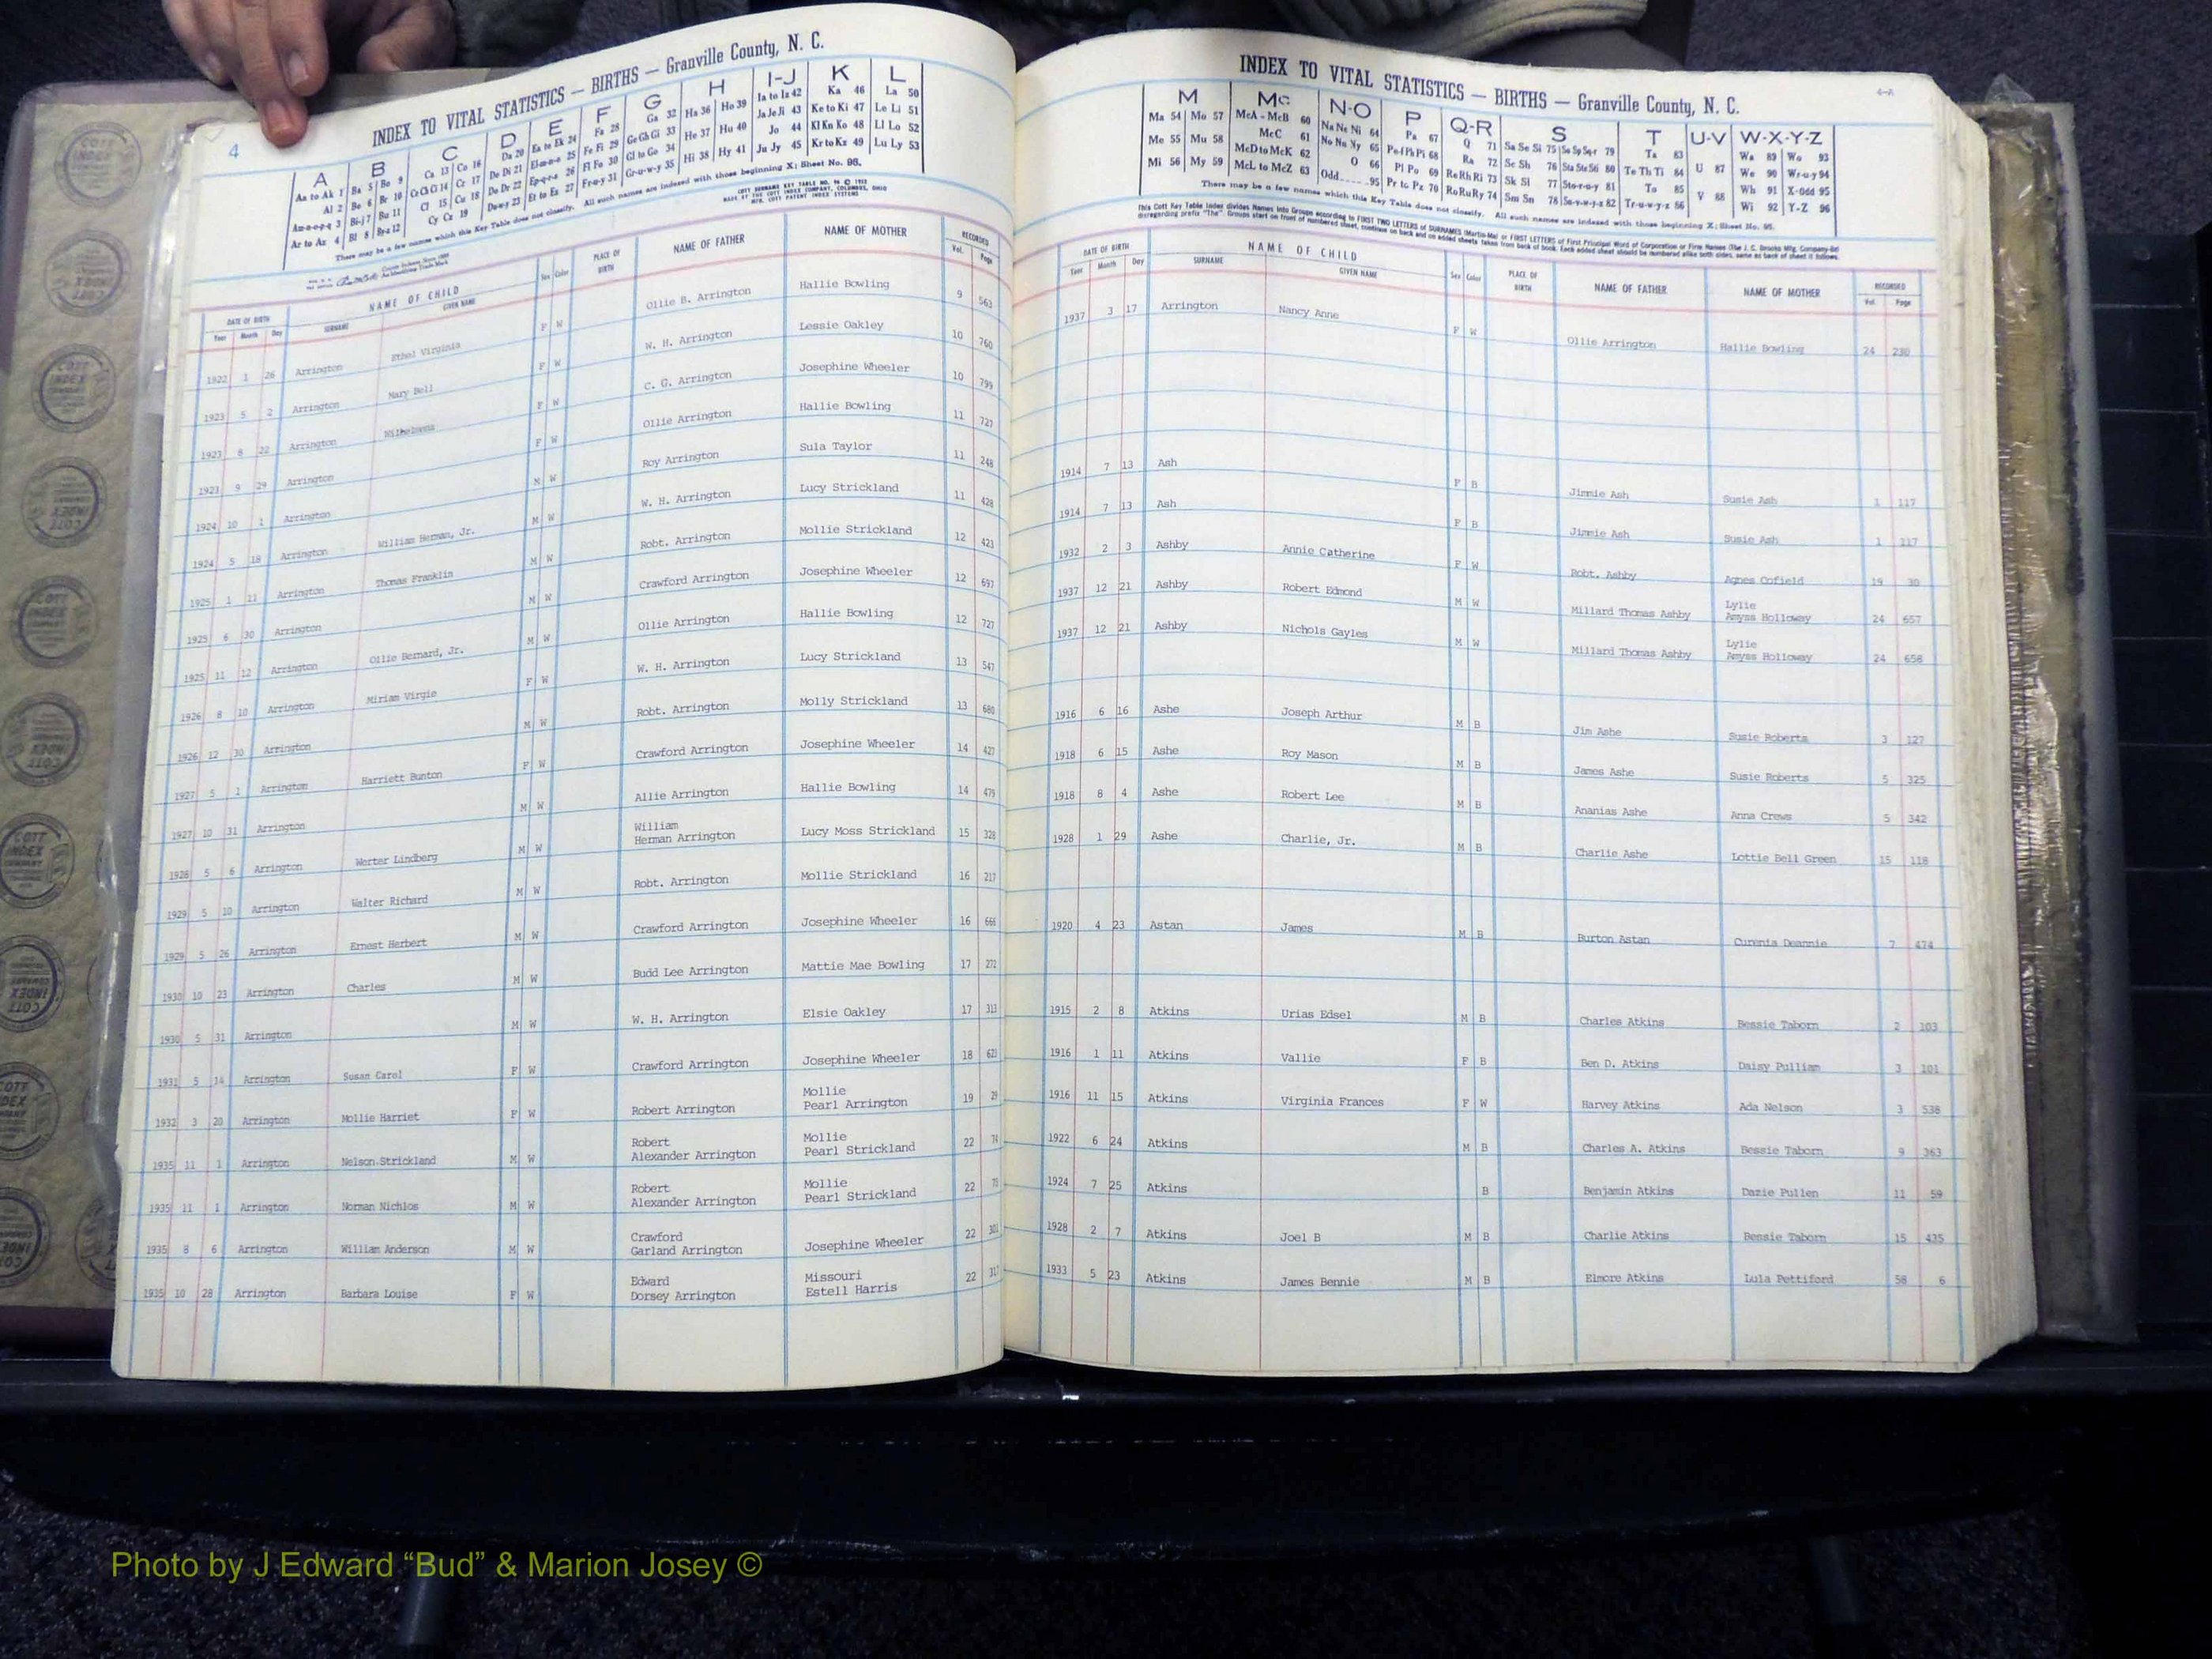 4
INDEX TO VITAL STATISTICS — BIRTHS — Granville County, N. C.
A B C D E F G H I-J K L
Aa to Ak 1 Ba 5 Bo 9 Ca 13 Co 16 Da 20 Ea to Ek 24 Fa 28 Ga 32 Ha 36 Ho 39 Ia to Iz 42 Ka 46 La 50
Al 2 Be 6 Br 10 Ce Ch Ci 14 Cr 17 De Di 21 El-m-n-o 25 Fe Fi 29 Ge Gh Gi 33 He 37 Hu 40 Ja Je Ji 43 Ke to Ki 47 Le Li 51
Am-n-o-p-q 3 Bi-j 7 Bu 11 Cl 15 Cu 18 Do Dr 22 Ep-q-r-s 26 Fl Fo 30 Gl to Go 34 Hi 38 Hy 41 Jo 44 Kl Kn Ko 48 Ll Lo 52
Ar to Az 4 Bl 8 By-z 12 Cy Cz 19 Du-w-y 23 Et to Ez 27 Fr-u-y 31 Gr-u-w-y 35 Ju Jy 45 Kr to Kz 49 Lu Ly 53
There may be a few names which this Key Table does not classify. All such names are indexed with those beginning X: Sheet No. 95.
DATE OF BIRTH NAME OF CHILD Sex Color PLACE OF BIRTH NAME OF FATHER NAME OF MOTHER RECORDED
Year Month Day SURNAME GIVEN NAME Vol. Page
1922 1 26 Arrington Ethel Virginia F W Ollie B. Arrington Hallie Bowling 9 563
1923 5 2 Arrington Mary Bell F W W. H. Arrington Lessie Oakley 10 760
1923 8 22 Arrington Wilhelmena F W C. G. Arrington Josephine Wheeler 10 799
1923 9 29 Arrington F W Ollie Arrington Hallie Bowling 11 727
1924 10 1 Arrington M W Roy Arrington Sula Taylor 11 248
1924 5 18 Arrington William Herman, Jr. M W W. H. Arrington Lucy Strickland 11 428
1925 1 11 Arrington Thomas Franklin M W Robt. Arrington Mollie Strickland 12 421
1925 6 30 Arrington M W Crawford Arrington Josephine Wheeler 12 697
1925 11 12 Arrington Ollie Bernard, Jr. M W Ollie Arrington Hallie Bowling 12 727
1926 8 10 Arrington Miriam Virgie F W W. H. Arrington Lucy Strickland 13 547
1926 12 30 Arrington M W Robt. Arrington Molly Strickland 13 680
1927 5 1 Arrington Harriett Bunton F W Crawford Arrington Josephine Wheeler 14 427
1927 10 31 Arrington M W Allie Arrington Hallie Bowling 14 479
1928 5 6 Arrington Werter Lindberg M W William Herman Arrington Lucy Moss Strickland 15 328
1929 5 10 Arrington Walter Richard M W Robt. Arrington Mollie Strickland 16 217
1929 5 26 Arrington Ernest Herbert M W Crawford Arrington Josephine Wheeler 16 666
1930 10 23 Arrington Charles M W Budd Lee Arrington Mattie Mae Bowling 17 272
1930 5 31 Arrington M W W. H. Arrington Elsie Oakley 17 313
1931 5 14 Arrington Susan Carol F W Crawford Arrington Josephine Wheeler 18 623
1932 3 20 Arrington Mollie Harriet F W Robert Arrington Mollie Pearl Arrington 19 29
1935 11 1 Arrington Nelson Strickland M W Robert Alexander Arrington Mollie Pearl Strickland 22 74
1935 11 1 Arrington Norman Nichlos M W Robert Alexander Arrington Mollie Pearl Strickland 22 75
1935 8 6 Arrington William Anderson M W Crawford Garland Arrington Josephine Wheeler 22 301
1935 10 28 Arrington Barbara Louise F W Edward Dorsey Arrington Missouri Estell Harris 22 317
4-A
INDEX TO VITAL STATISTICS — BIRTHS — Granville County, N. C.
M Mc N-O P Q-R S T U-V W-X-Y-Z
Ma 54 Mo 57 McA - McB 60 Na Ne Ni 64 Pa 67 Q 71 Sa Se Si 75 So Sp Sq-r 79 Ta 83 U 87 Wa 89 Wo 93
Me 55 Mu 58 McC 61 No Nu Ny 65 Pe-f Ph Pi 68 Ra 72 Sc Sh 76 Sta Ste Sti 80 Te Th Ti 84 V 88 We 90 Wr-u-y 94
Mi 56 My 59 McD to McK 62 O 66 Pl Po 69 Re Rh Ri 73 Sk Sl 77 Sto-r-u-y 81 To 85 Wh 91 X-Odd 95
McL to McZ 63 Odd 95 Pr to Pz 70 Ro Ru Ry 74 Sm Sn 78 Su-v-w-y-z 82 Tr-u-w-y-z 86 Wi 92 Y-Z 96
There may be a few names which this Key Table does not classify. All such names are indexed with those beginning X: Sheet No. 95.
This Cott Key Table Index divides Names into Groups according to FIRST TWO LETTERS of SURNAMES (Martin-Ma) or FIRST LETTERS of First Principal Word of Corporation or Firm Names (The J. C. Brooks Mfg. Company-Br)
disregarding prefix "The". Groups start on front of numbered sheet, continue on back and on added sheets taken from back of book. Each added sheet should be numbered alike both sides, same as back of sheet it follows.
DATE OF BIRTH NAME OF CHILD Sex Color PLACE OF BIRTH NAME OF FATHER NAME OF MOTHER RECORDED
Year Month Day SURNAME GIVEN NAME Vol. Page
1937 3 17 Arrington Nancy Anne F W Ollie Arrington Hallie Bowling 24 230
1914 7 13 Ash F B Jimmie Ash Susie Ash 1 117
1914 7 13 Ash F B Jimmie Ash Susie Ash 1 117
1932 2 3 Ashby Annie Catherine F W Robt. Ashby Agnes Cofield 19 30
1937 12 21 Ashby Robert Edmond M W Millard Thomas Ashby Lylie Amyss Holloway 24 657
1937 12 21 Ashby Nichols Gayles M W Millard Thomas Ashby Lylie Amyss Holloway 24 658
1916 6 16 Ashe Joseph Arthur M B Jim Ashe Susie Roberts 3 127
1918 6 15 Ashe Roy Mason M B James Ashe Susie Roberts 5 325
1918 8 4 Ashe Robert Lee M B Ananias Ashe Anna Crews 5 342
1928 1 29 Ashe Charlie, Jr. M B Charlie Ashe Lottie Bell Green 15 118
1920 4 23 Astan James M B Burton Astan Curenia Deannie 7 474
1915 2 8 Atkins Urias Edsel M B Charles Atkins Bessie Taborn 2 103
1916 1 11 Atkins Vallie F B Ben D. Atkins Daisy Pulliam 3 101
1916 11 15 Atkins Virginia Frances F W Harvey Atkins Ada Nelson 3 538
1922 6 24 Atkins M B Charles A. Atkins Bessie Taborn 9 363
1924 7 25 Atkins B Benjamin Atkins Dazie Pullen 11 59
1928 2 7 Atkins Joel B M B Charlie Atkins Bessie Taborn 15 435
1933 5 23 Atkins James Bennie M B Elmore Atkins Lula Pettiford 58 6
Photo by J Edward “Bud” & Marion Josey ©